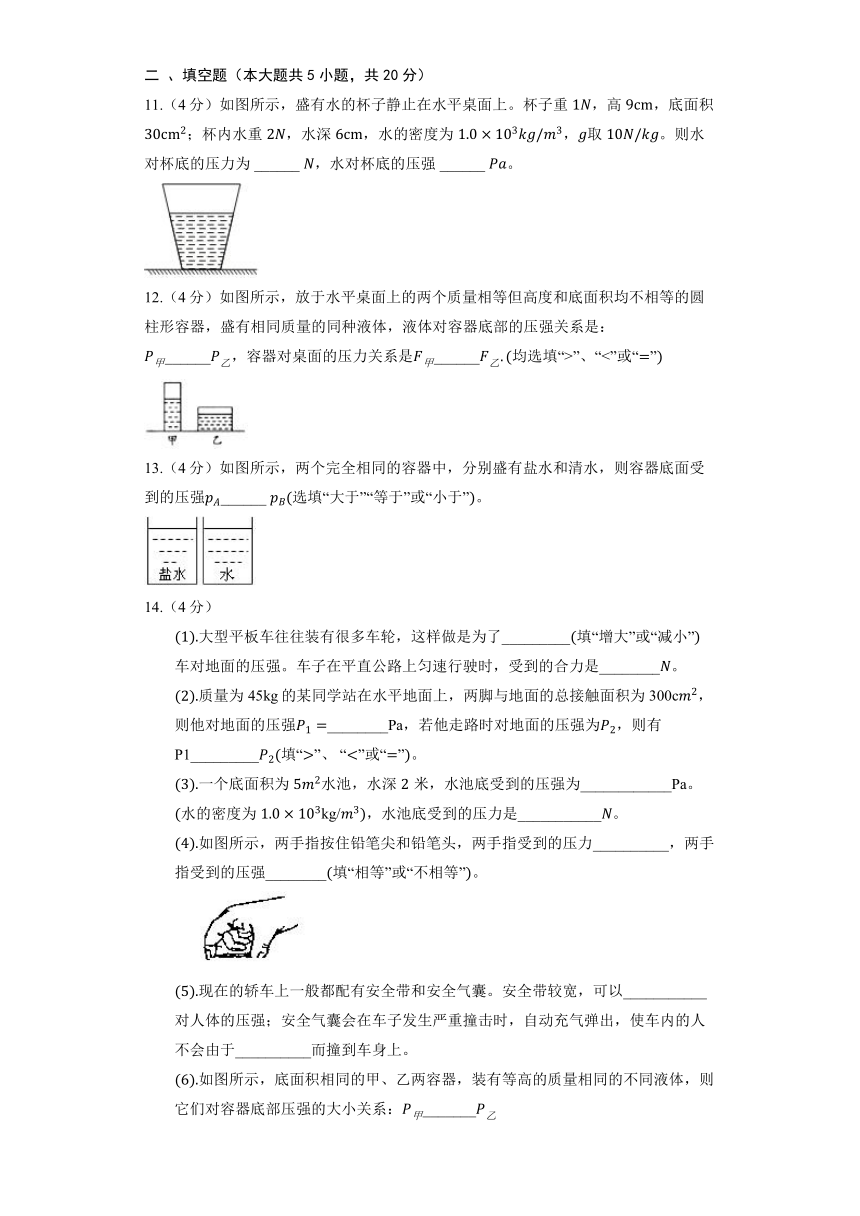 二 、填空题（本大题共 5 小题，共 20 分）
11.（4 分）如图所示，盛有水的杯子静止在水平桌面上。杯子重 1N，高 9cm，底面积
30cm²；杯内水重 2N，水深 6cm，水的密度为 1.0 × 10³kg/m³，g取 10N/kg。则水
对杯底的压力为 ______ N，水对杯底的压强 ______ Pa。
12.（4 分）如图所示，放于水平桌面上的两个质量相等但高度和底面积均不相等的圆
柱形容器，盛有相同质量的同种液体，液体对容器底部的压强关系是：
P甲______P乙，容器对桌面的压力关系是F甲______F乙.(均选填“>”、“<”或“=”)
甲 乙
13.（4 分）如图所示，两个完全相同的容器中，分别盛有盐水和清水，则容器底面受
到的压强pA______ pB(选填“大于”“等于”或“小于”)。
盐水 水
14.（4 分）
(1).大型平板车往往装有很多车轮，这样做是为了_________(填“增大”或“减小”)
车对地面的压强。车子在平直公路上匀速行驶时，受到的合力是________N。
(2).质量为 45kg 的某同学站在水平地面上，两脚与地面的总接触面积为 300cm²，
则他对地面的压强P₁ =________Pa，若他走路时对地面的压强为P₂，则有
P1_________P₂(填“>”、 “<”或“=”)。
(3).一个底面积为 5m²水池，水深 2 米，水池底受到的压强为____________Pa。
(水的密度为 1.0 × 10³kg/m³)，水池底受到的压力是___________N。
(4).如图所示，两手指按住铅笔尖和铅笔头，两手指受到的压力__________，两手
指受到的压强________(填“相等”或“不相等”)。
(5).现在的轿车上一般都配有安全带和安全气囊。安全带较宽，可以___________
对人体的压强；安全气囊会在车子发生严重撞击时，自动充气弹出，使车内的人
不会由于__________而撞到车身上。
(6).如图所示，底面积相同的甲、乙两容器，装有等高的质量相同的不同液体，则
它们对容器底部压强的大小关系：P甲_______P乙